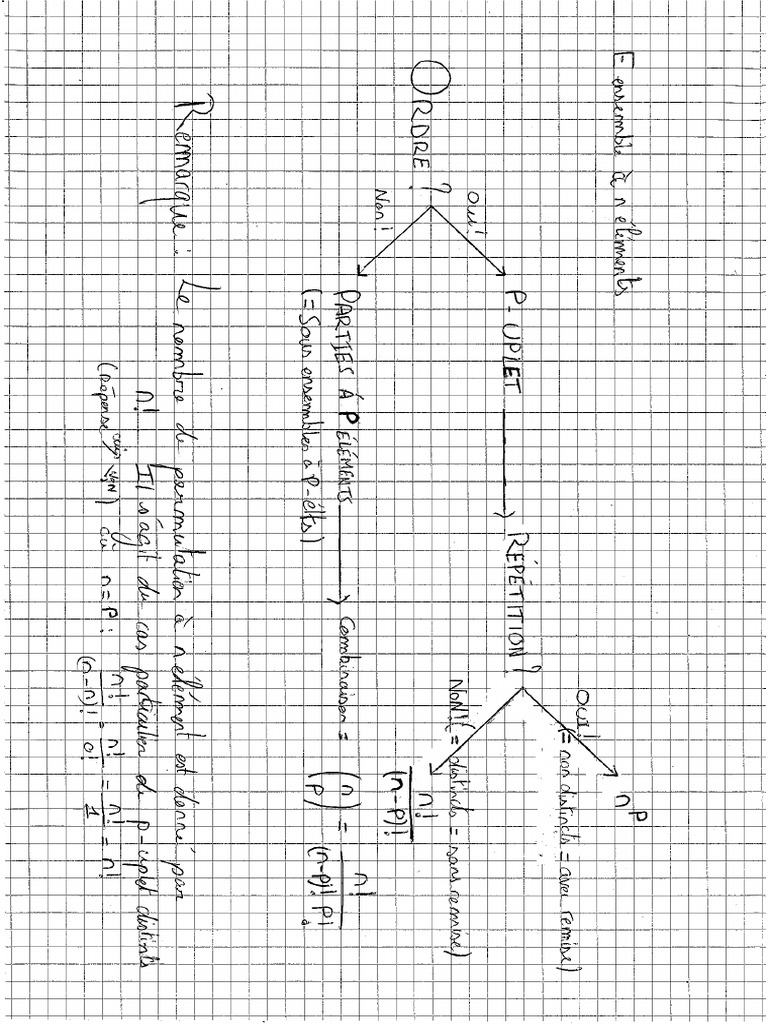 E ensemble à n éléments
ORDRE ?
Oui!
Non!
P-UPLET
RÉPÉTITION ?
Oui!
(= non distincts = avec remise)
n^p
NON! (= distincts = sans remise)
n!/(n-p)!
PARTIES À P ÉLÉMENTS
(= Sous ensembles à p-élts)
Combinaison = (n p) = n!/((n-p)! p!)
Remarque : Le nombre de permutation à n élément est donné par
n! Il s'agit du cas particulier de p-uplet distincts
(réponse) où n = p : n!/(n-n)! = n!/0! = n!/1 = n!